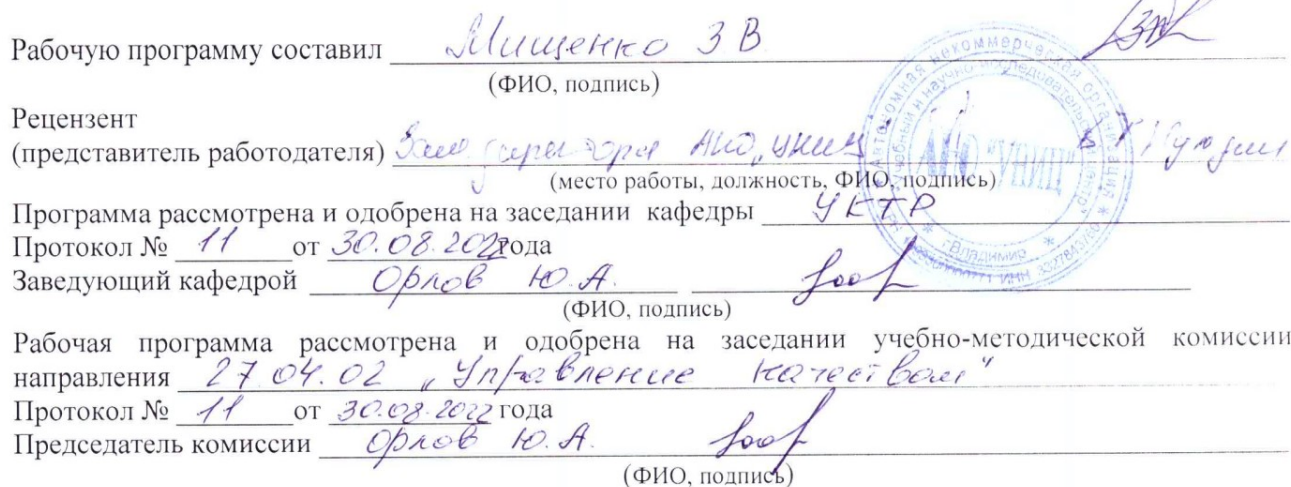 Рабочую программу составил Мищенко З В
(ФИО, подпись)
Рецензент
(представитель работодателя) Зам директора АНО „УНИЦ"
(место работы, должность, ФИО, подпись)
Программа рассмотрена и одобрена на заседании кафедры УКТР
Протокол № 11 от 30.08.2022 года
Заведующий кафедрой Орлов Ю.А.
(ФИО, подпись)
Рабочая программа рассмотрена и одобрена на заседании учебно-методической комиссии
направления 27.04.02 „Управление качеством"
Протокол № 11 от 30.08.2022 года
Председатель комиссии Орлов Ю.А.
(ФИО, подпись)
Автономная некоммерческая организация
Учебный и научно исследовательский центр
АНО "УНИЦ"
г.Владимир
ИНН